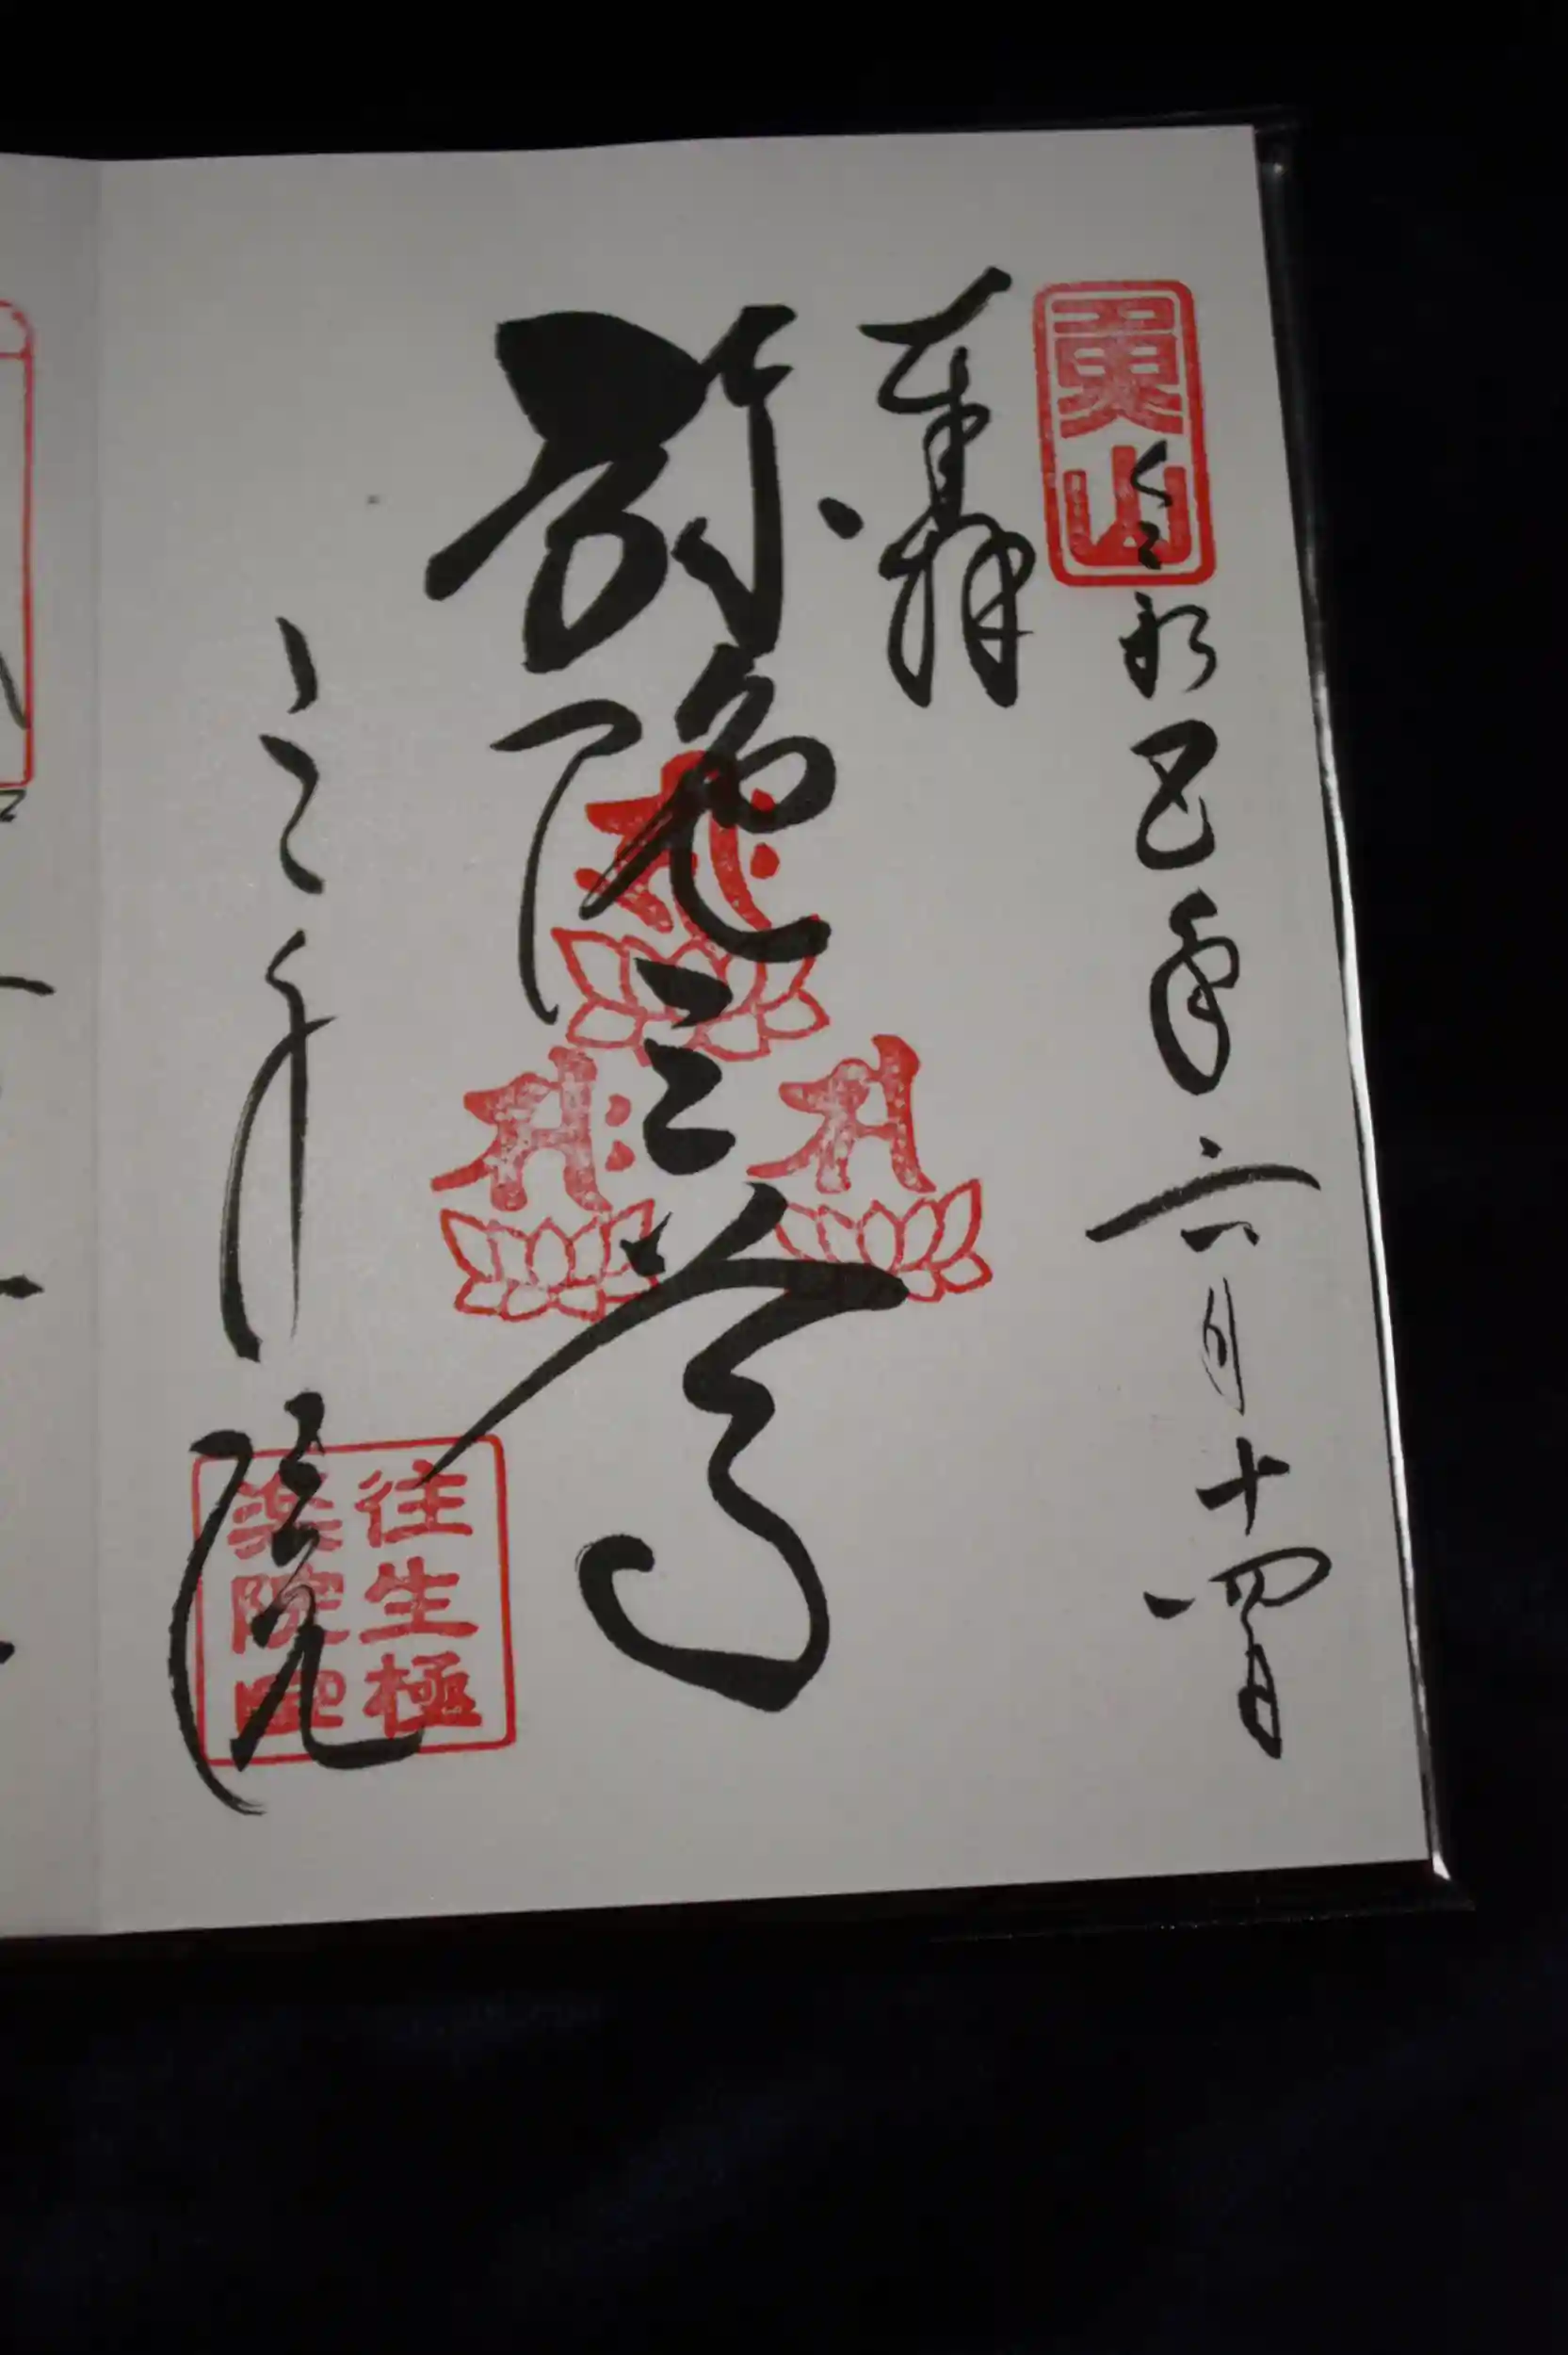 魚山
令和五年六月十四日
奉拝
弥陀三尊
三千院
往生極
楽院印